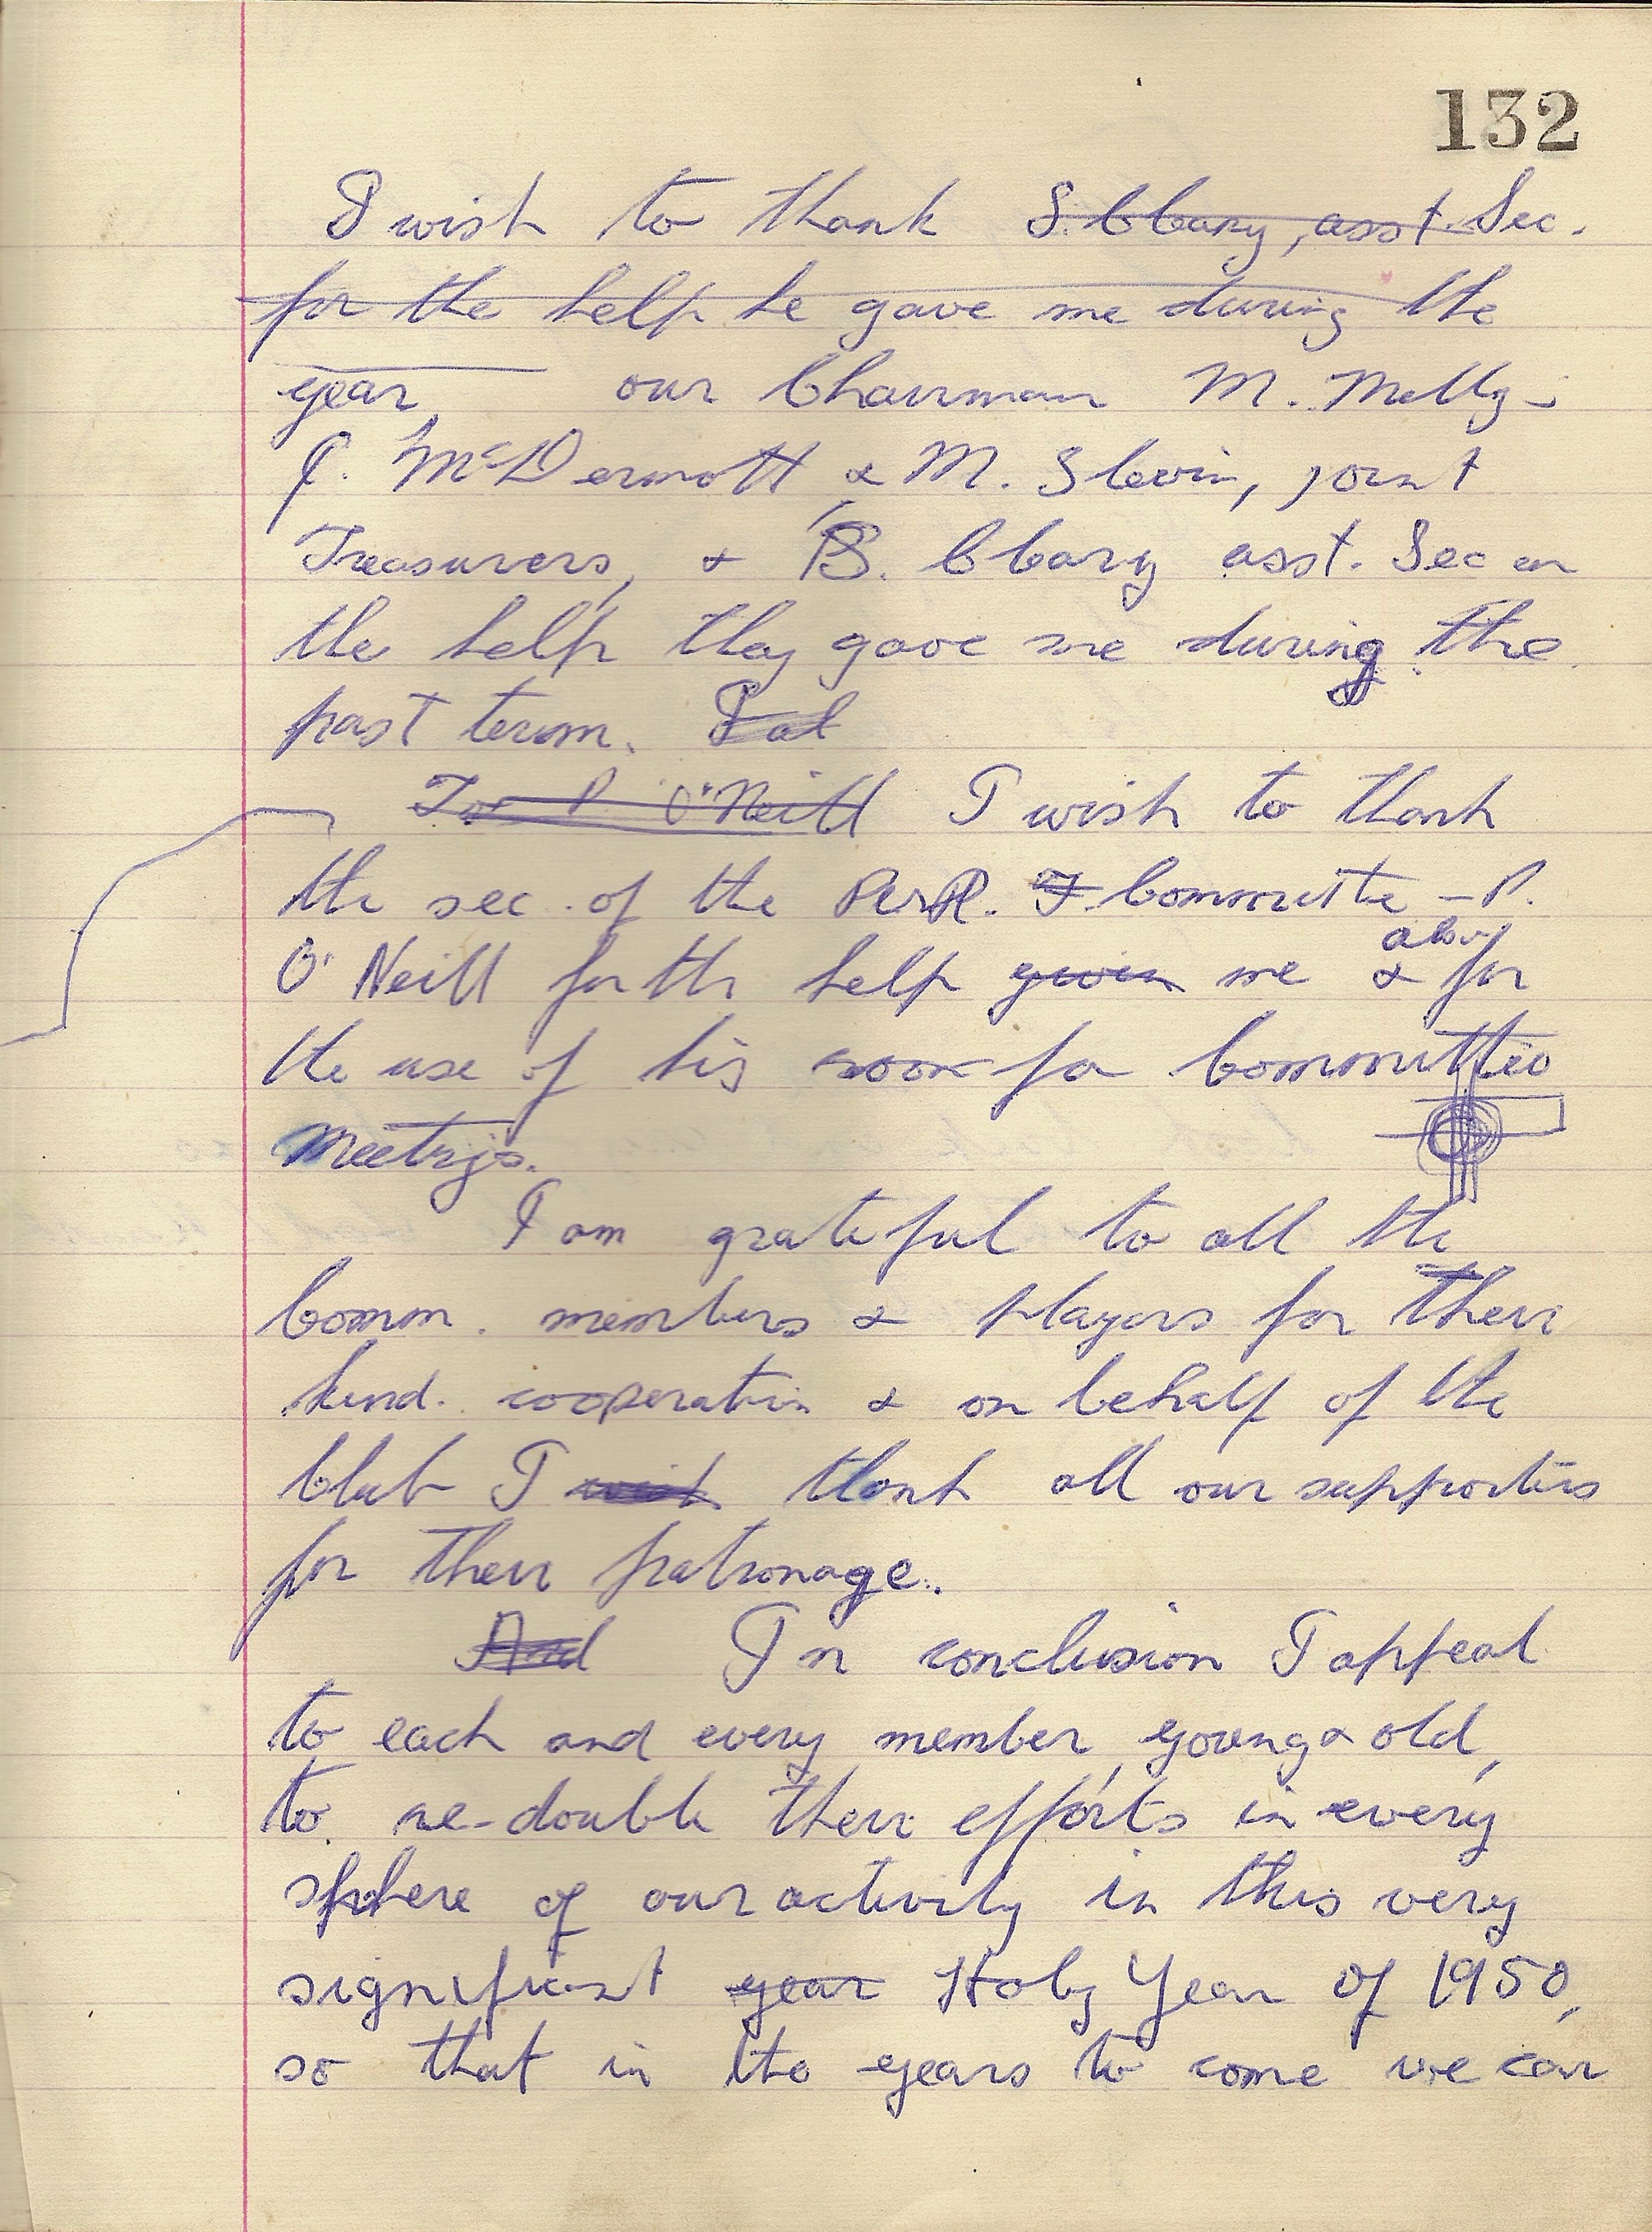 132
I wish to thank S. Cleary, asst. Sec.
for the help he gave me during the
year, our Chairman M. Melly -
J. McDermott & M. Slevin, joint
Treasurers, & S. Cleary asst. Sec on
the help they gave me during the
past term. I al
To P O'Neill I wish to thank
the sec. of the Committe - P.
O'Neill for th help given me & for
also
the use of his room for Committee
Meetings.
I am grateful to all the
Comm. members & players for their
kind. cooperation & on behalf of the
Club I wish thank all our supporters
for their patronage.
And In conclusion I appeal
to each and every member, young & old,
to re-double their efforts in every
sphere of our activity in this very
significant year Holy Year of 1950,
so that in the years to come we can